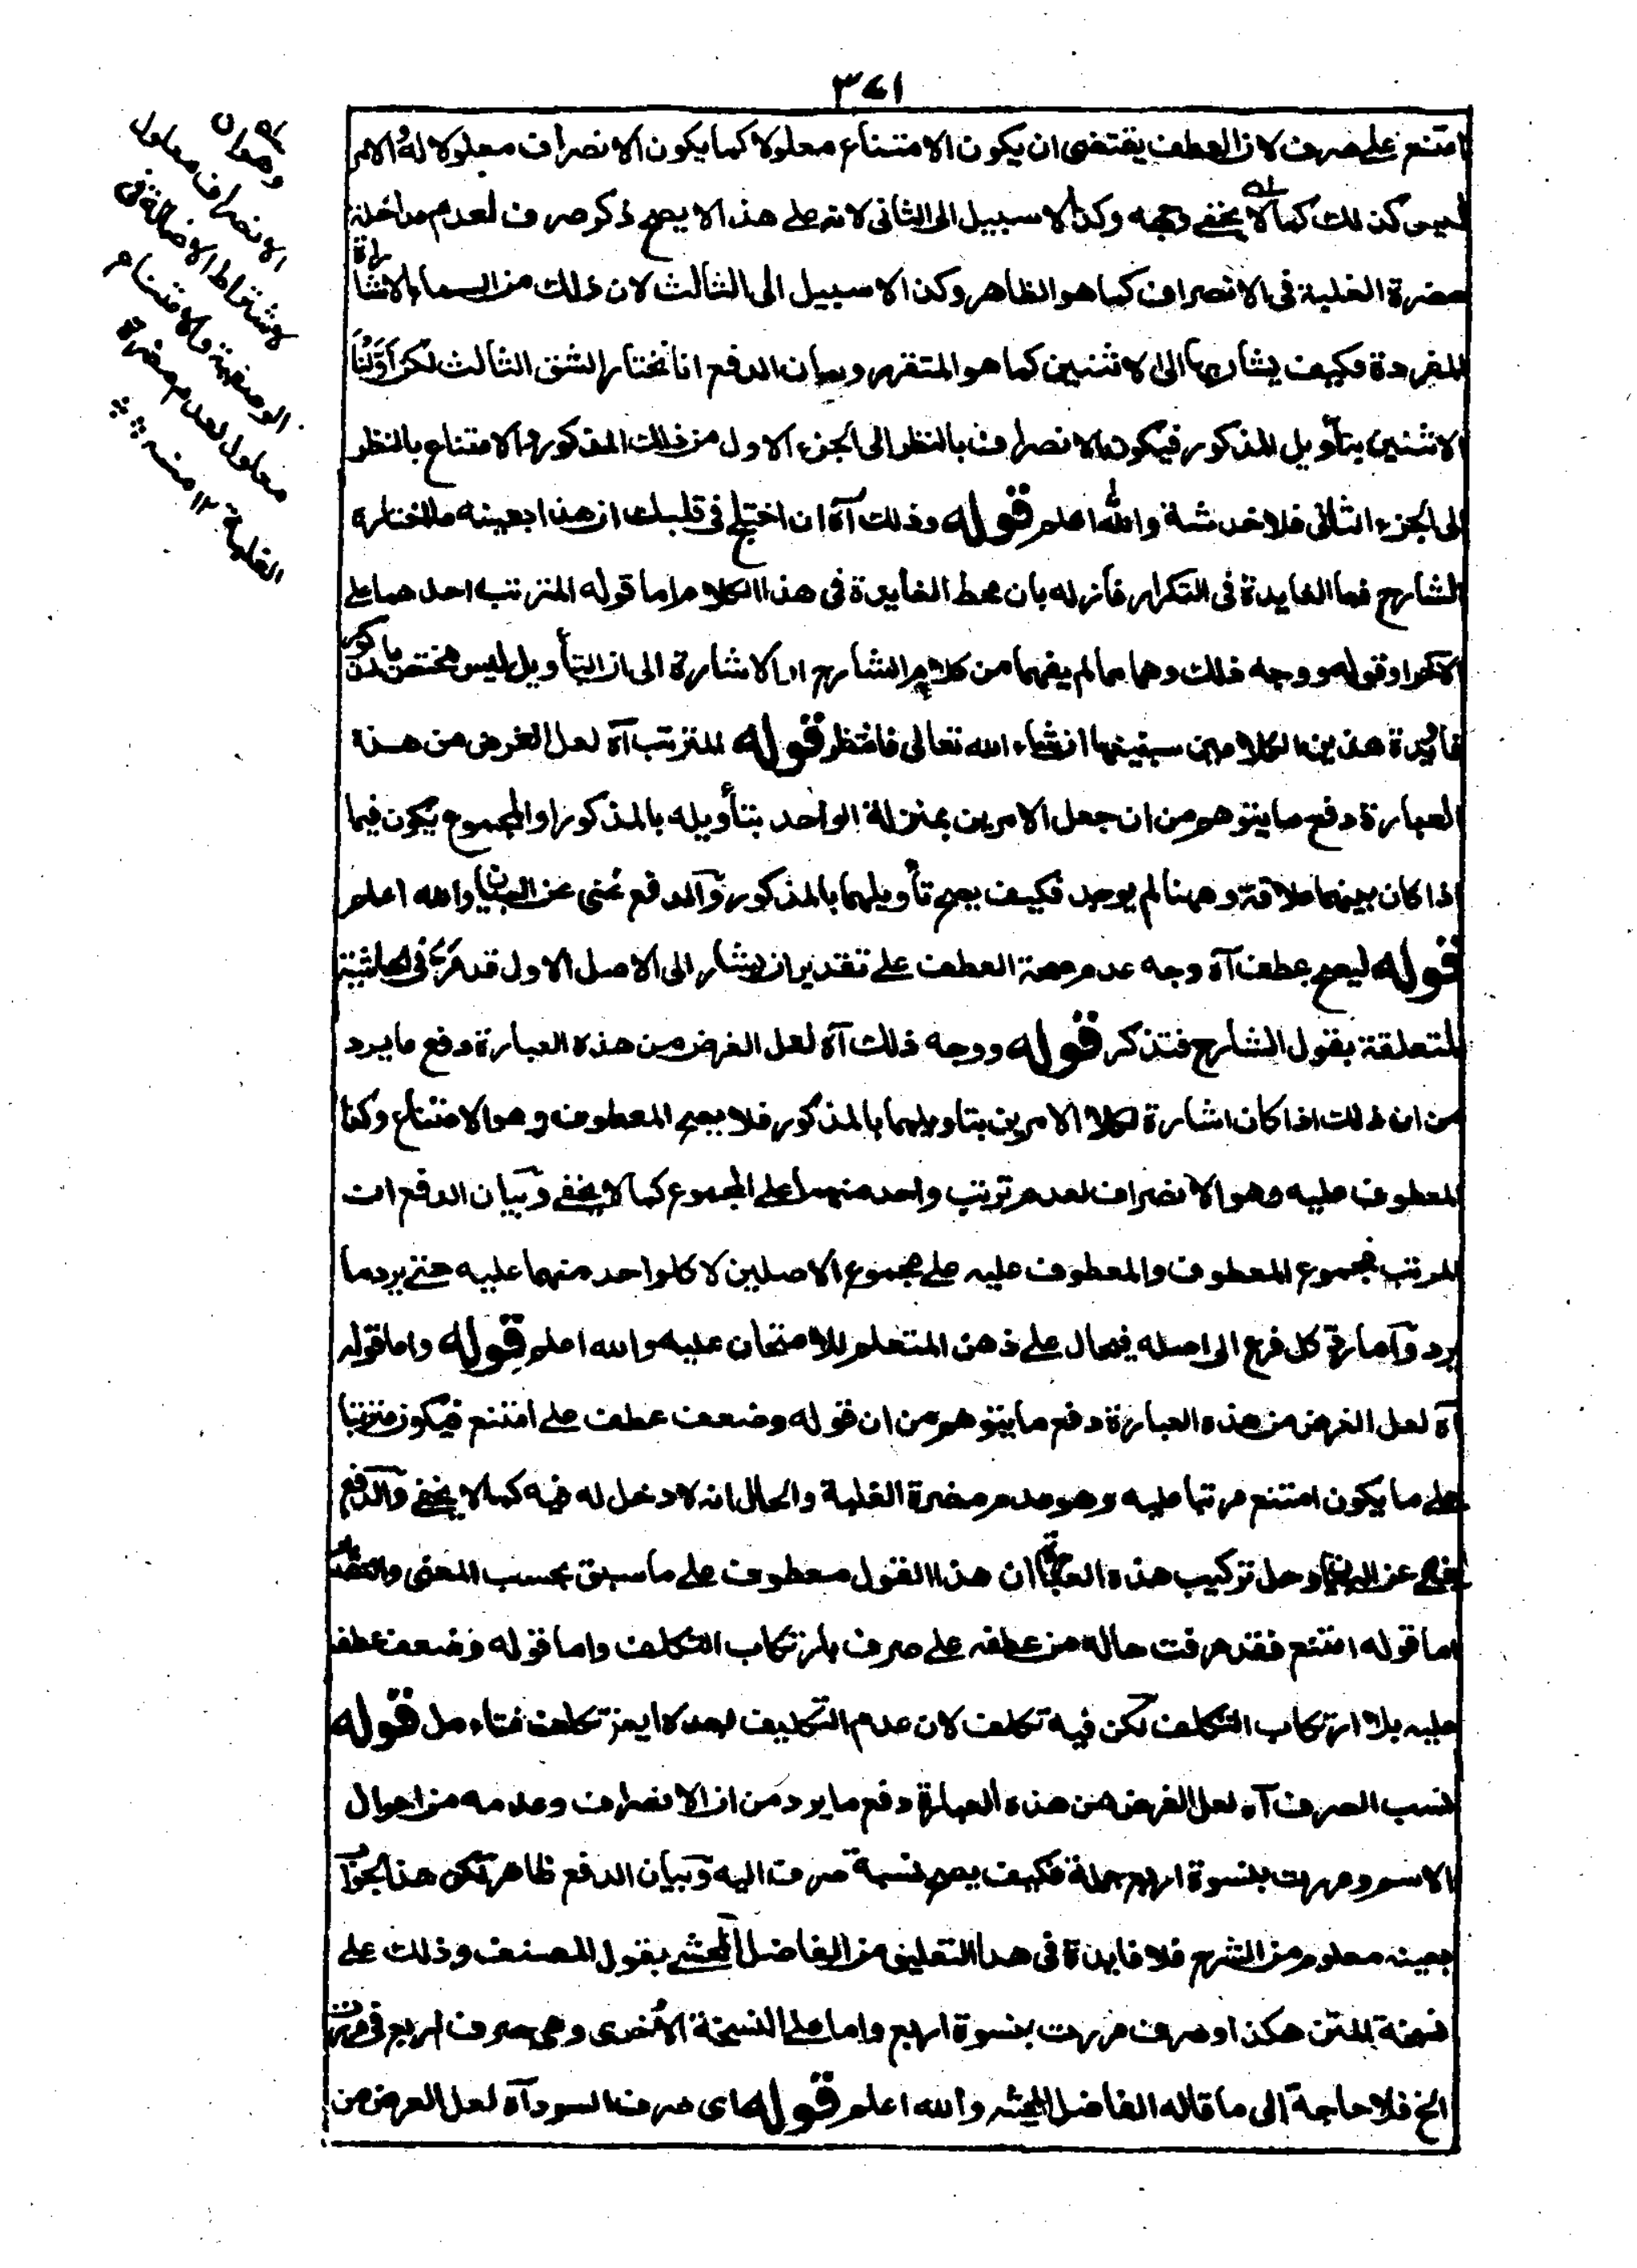 ٣٧١
امتنع على صرف لان العطف يقتضى ان يكون الامتناع معلولا كما يكون الانصراف معلولا له الامر
ليس كذلك كما لا يخفى وجهه وكذا لا سبيل الى الثانى لانه على هذا لا يصح ذكر صرف لعدم مداخلة
مضرة الغلبة فى الانصراف كما هو الظاهر وكذا لا سبيل الى الثالث لان ذلك من اسماء الاشارة
المفردة فكيف يشار بها الى الاثنين كما هو المتقرر وبيان الدفع انا نختار الشق الثالث لكن اولنا
الاثنين بتأويل المذكور فيكون الانصراف بالنظر الى الجزء الاول من ذلك المذكور والامتناع بالنظر
الى الجزء الثانى فلا خدشة والله اعلم قوله وذلك آه ان اختلج فى قلبك ان هذا بعينه ما اختاره
الشارح فما الفايدة فى التكرار فأزله بان محط الفايدة فى هذا الكلام اما قوله المترتب احدهما على
الآخر او قوله ووجه ذلك وهما مما لم يفهما من كلام الشارح او الاشارة الى ان التأويل ليس مختص بالمذكور
فايدة هذين الكلامين سنبينها انشاء الله تعالى فانتظر قوله المترتب آه لعل الغرض من هذه
العبارة دفع ما يتوهم من ان جعل الامرين بمنزلة الواحد بتأويله بالمذكور او المجموع يكون فيما
اذا كان بينهما علاقة وههنا لم يوجد فكيف يصح تأويلهما بالمذكور والدفع غنى عن البيان والله اعلم
قوله ليصح عطف آه وجه عدم صحة العطف على تقدير ان يشار الى الاصل الاول قد مر فى الحاشية
المتعلقة بقول الشارح فتذكر قوله ووجه ذلك آه لعل الغرض من هذه العبارة دفع ما يرد
من ان ذلك اذا كان اشارة لكلا الامرين بتاويلهما بالمذكور فلا يصح المعطوف وهو الامتناع وكذا
المعطوف عليه وهو الانصراف لعدم ترتب واحد منهما على المجموع كما لا يخفى وبيان الدفع ان
المرتب مجموع المعطوف والمعطوف عليه على مجموع الاصلين لا كل واحد منهما عليه حتى يرد ما
يرد واما رد كل فرع الى اصله فيحال على ذهن المتعلم للامتحان عليه والله اعلم قوله واما قوله
آه لعل الغرض من هذه العبارة دفع ما يتوهم من ان قوله وضعف عطف على امتنع فيكون مترتبا
على ما يكون امتنع مرتبا عليه وهو عدم مضرة الغلبة والحال انه لا دخل له فيه كما لا يخفى والدفع
غنى عن البيان وحل تركيب هذه العبارة ان هذا القول معطوف على ما سبق بحسب المعنى والتقدير
اما قوله امتنع فقد عرفت حاله من عطفه على صرف بارتكاب التكلف واما قوله وضعف عطف
عليه بلا ارتكاب التكلف لكن فيه تكلف لان عدم التكليف بعد لا يعز تكلف فتاءمل قوله
نسب الصرف آه لعل الغرض من هذه العبارة دفع ما يرد من ان الانصراف وعدمه من احوال
الاسم ومررت بنسوة اربع جملة فكيف يصح نسبة صرف اليه وبيان الدفع ظاهر لكن هذا الجواب
بعينه معلوم من الشرح فلا فايدة فى هذا التعليق من الفاضل المحشى بقول المصنف وذلك على
نسخة المتن هكذا وصرف مررت بنسوة اربع واما على النسخة الاخرى وهى صرف اربع فى مررت
الخ فلا حاجة الى ما قاله الفاضل المحشى والله اعلم قوله اى صرف اسود آه لعل الغرض من
له وهو ان
الانصراف معلول
لاشتراط الاصالة فى
الوصفية والامتناع
معلول لعدم مضرة
الغلبة ١٢ منه